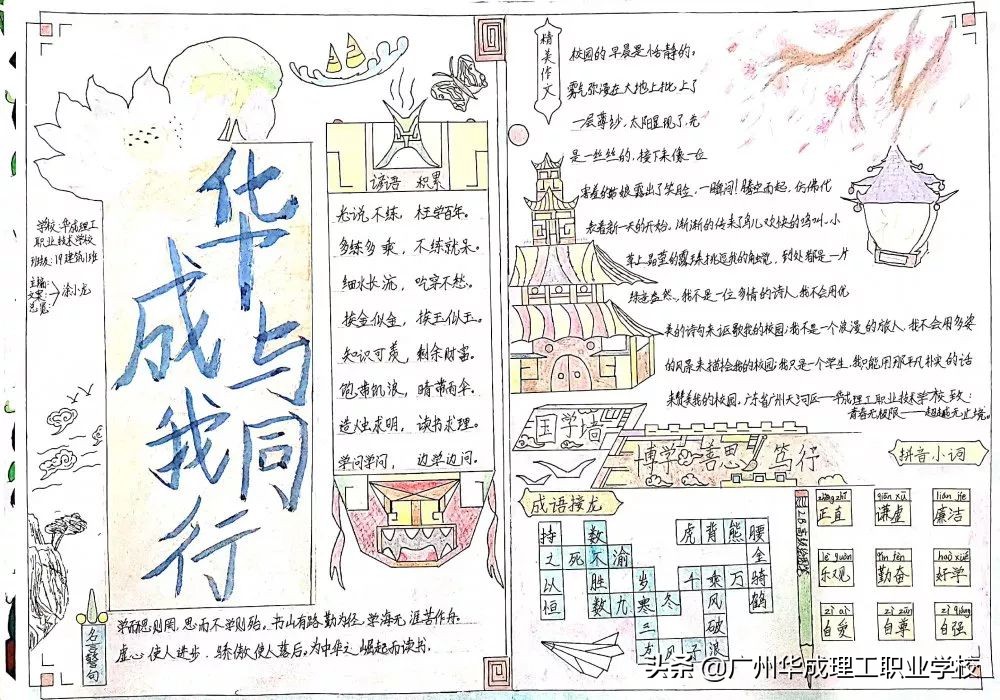 华成
与我
同行
学校:华成理工
职业技术学校
班级:19建筑1班
主编:
文案:
总览:
涂小龙
谚语 积累
光说不练,枉学百年。
多练多乘,不练就呆。
细水长流,吃穿不愁。
挨金似金,挨玉似玉。
知识可羡,剩余财富。
饱带饥浪,晴带雨伞。
造烛求明,读书求理。
学问学问,边学边问。
名言警句
学而思则罔,思而不学则殆,书山有路勤为径,学海无涯苦作舟。
虚心使人进步,骄傲使人落后。为中华之崛起而读书。
精美作文
校园的早晨是恬静的。
雾气弥漫在大地上批上了
一层薄纱,太阳显现了,先
是一丝丝的,接下来像一位
害羞的姑娘露出了笑脸,一瞬间!腾空而起,仿佛代
表着新一天的开始,渐渐的传来了鸟儿欢快的鸣叫,小
草上晶莹的露珠挑逗我的触觉,到处都是一片
绿意盎然。我不是一位多情的诗人,我不会用优
美的诗句来讴歌我的校园;我不是一个浪漫的旅人,我不会用多姿
的风景来描绘我的校园;我只是一个学生,我只能用那平凡朴实的话
来赞美我的校园。广东省广州天河区——华成理工职业技术学校致:
青春无极限——超越无止境。
国学墙
博学 善思 笃行
成语接龙
持 数 虎背熊腰
之死不渝 金
以 胜 岁 千乘万骑
恒 数九寒冬 风 鹤
三 破
友风子浪
2B
拼音小词
zhèng zhí qiān xū lián jié
正直 谦虚 廉洁
lè guān qín fèn hào xué
乐观 勤奋 好学
zì ài zì zūn zì qiáng
自爱 自尊 自强
头条 @广州华成理工职业学校